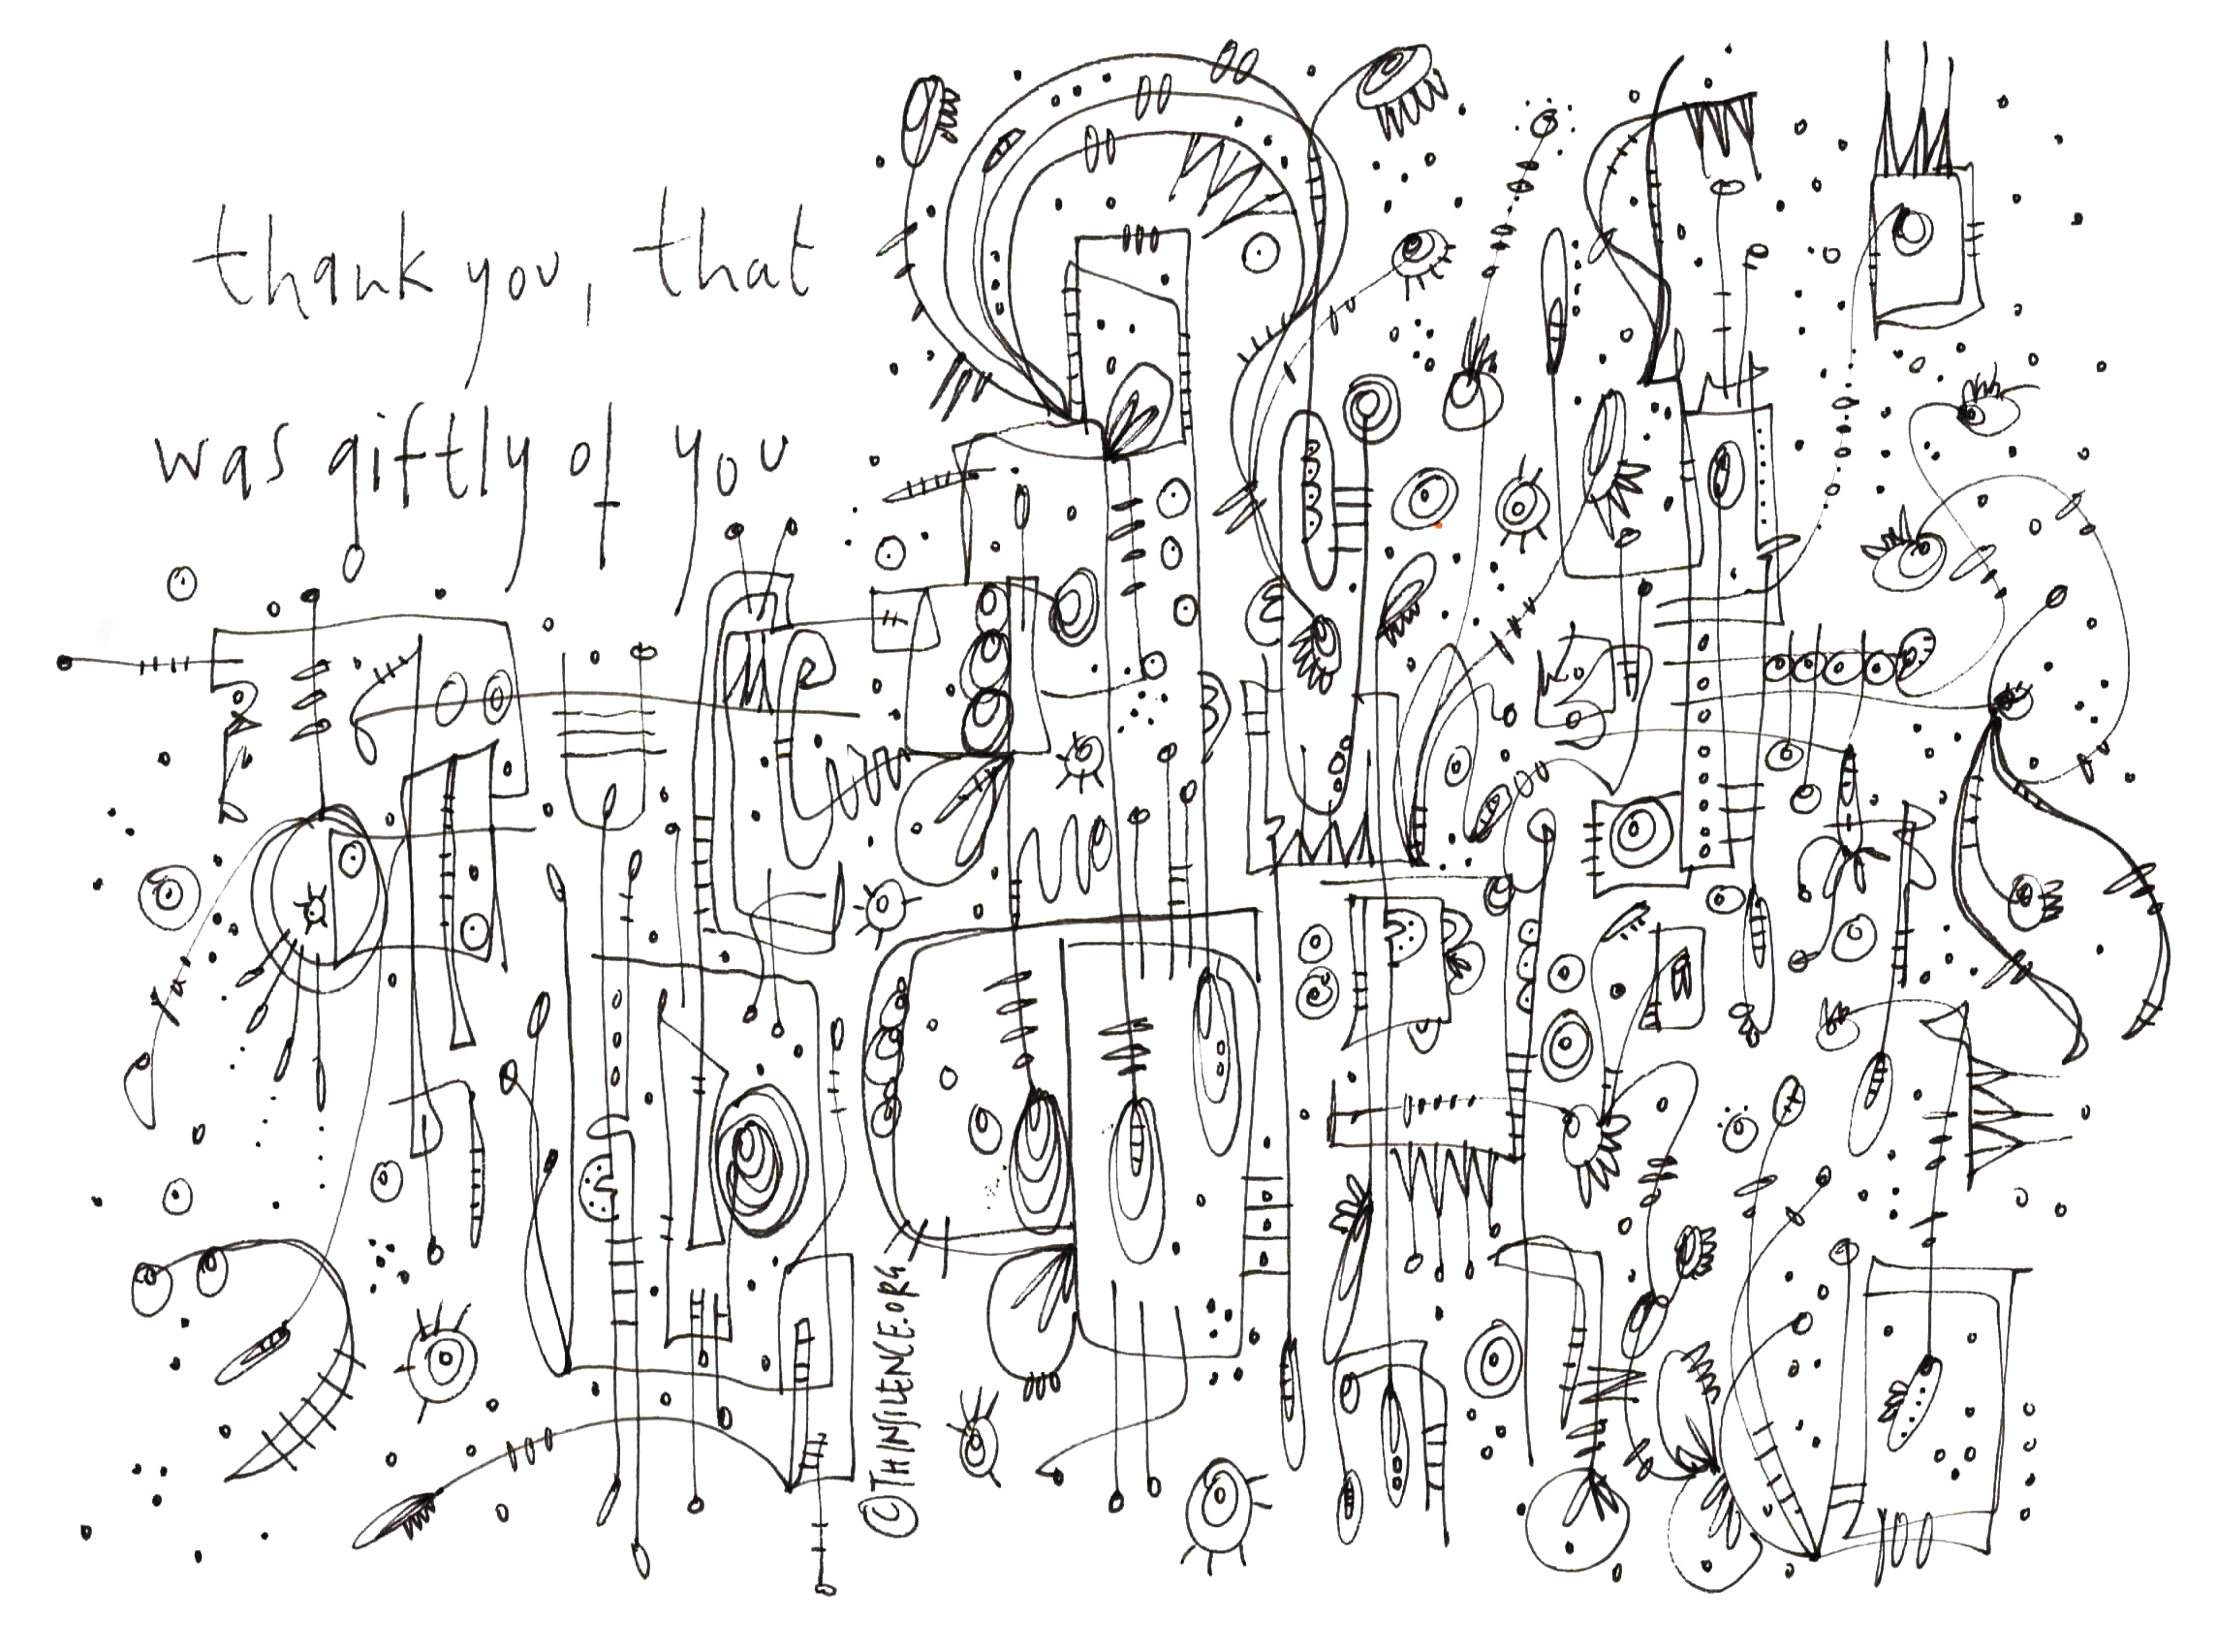 thank you, that
was giftly of you
©THINSILENCE.ORG